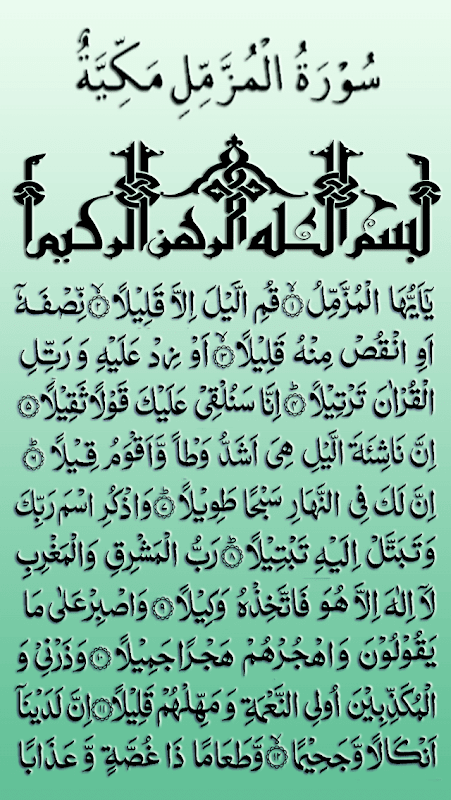 سُوْرَةُ الْمُزَّمِّلِ مَكِّيَّةٌ
بسم الله الرحمن الرحيم
يٰٓاَيُّهَا الْمُزَّمِّلُ ۙ﴿۱﴾ قُمِ الَّيْلَ اِلَّا قَلِيْلًا ۙ﴿۲﴾ نِّصْفَهٗۤ
اَوِ انْقُصْ مِنْهُ قَلِيْلًا ۙ﴿۳﴾ اَوْ زِدْ عَلَيْهِ وَ رَتِّلِ
الْقُرْاٰنَ تَرْتِيْلًا ؕ﴿۴﴾ اِنَّا سَنُلْقِيْ عَلَيْكَ قَوْلًا ثَقِيْلًا ﴿۵﴾
اِنَّ نَاشِئَةَ الَّيْلِ هِيَ اَشَدُّ وَطْاً وَّاَقْوَمُ قِيْلًا ؕ﴿۶﴾
اِنَّ لَكَ فِي النَّهَارِ سَبْحًا طَوِيْلًا ؕ﴿۷﴾ وَاذْكُرِ اسْمَ رَبِّكَ
وَتَبَتَّلْ اِلَيْهِ تَبْتِيْلًا ؕ﴿۸﴾ رَبُّ الْمَشْرِقِ وَالْمَغْرِبِ
لَاۤ اِلٰهَ اِلَّا هُوَ فَاتَّخِذْهُ وَكِيْلًا ﴿۹﴾ وَاصْبِرْ عَلٰى مَا
يَقُوْلُوْنَ وَاهْجُرْهُمْ هَجْرًا جَمِيْلًا ﴿۱۰﴾ وَذَرْنِيْ وَ
الْمُكَذِّبِيْنَ اُولِي النَّعْمَةِ وَمَهِّلْهُمْ قَلِيْلًا ﴿۱۱﴾ اِنَّ لَدَيْنَاۤ
اَنْكَالًا وَّجَحِيْمًا ۙ﴿۱۲﴾ وَّطَعَامًا ذَا غُصَّةٍ وَّ عَذَابًا